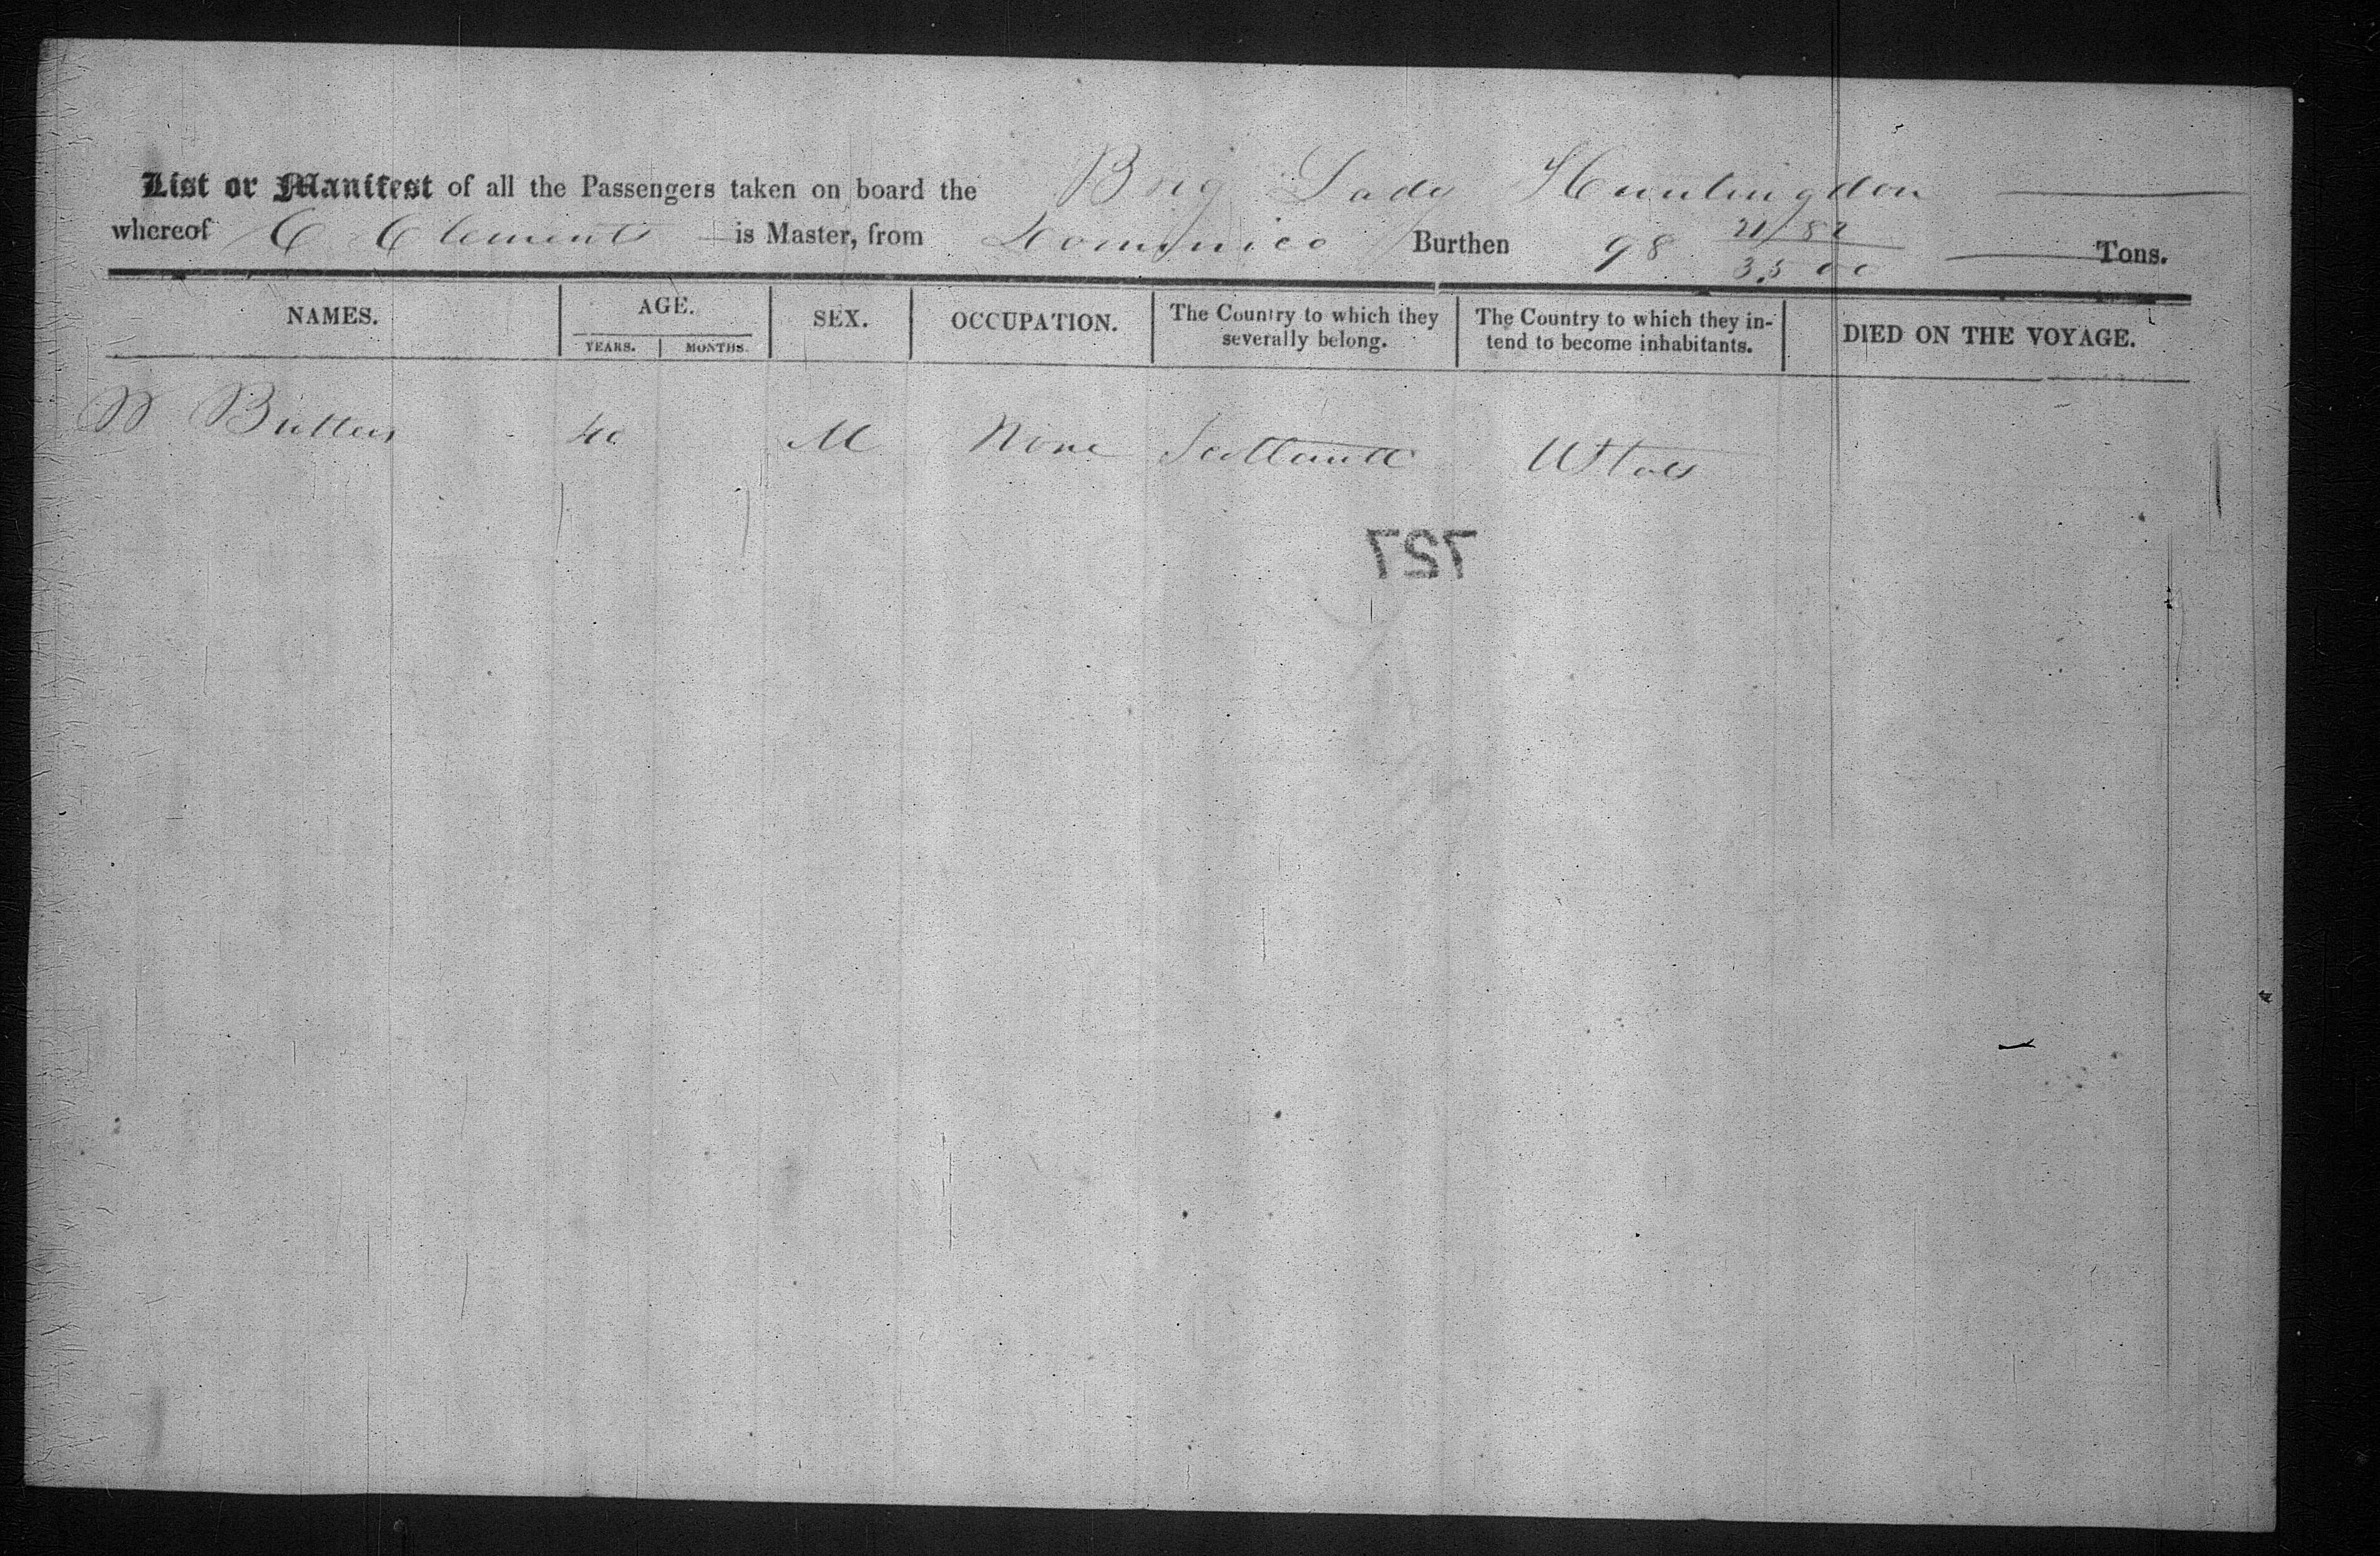 List or Manifest of all the Passengers taken on board the Brig Lady Huntingdon
whereof C Clements is Master, from Dominico Burthen 98 21/82 3500 Tons.
NAMES. AGE. SEX. OCCUPATION. The Country to which they severally belong. The Country to which they in-tend to become inhabitants. DIED ON THE VOYAGE.
YEARS. MONTHS.
W 40 M None Scotland UStates
727